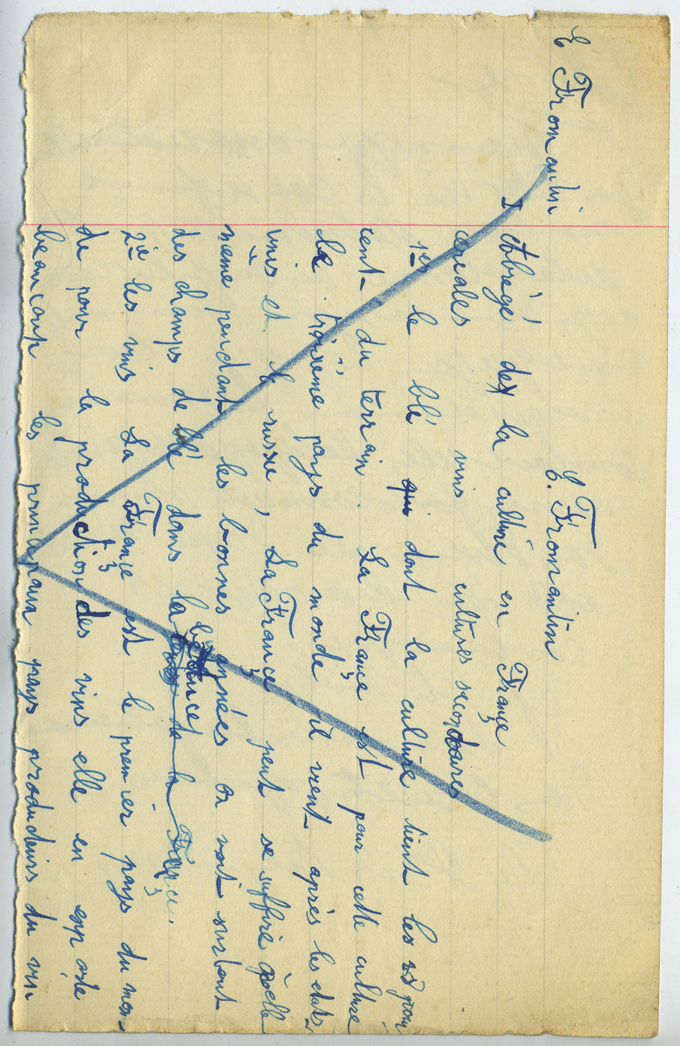 E Fromantin
E. Fromantin
I Abrégé des la culture en Françe
cereales vins cultures secondaires
1es le blé qui dont la culture tient les 25 pour
cent du terrain La Françe est pour cette culture
la troixème pays du monde il vient après les etats
unis et la russie, La Françe peut se suffire a elle
même pendant les bonnes années on voit surtout
des champs de blé dans la de la Françe.
2ie les vins La Françe est le premier pays du mon-
de pour la production des vins elle en exporte
beaucoup les principaux pays producteurs du vin